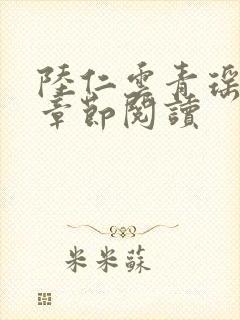 陸仁雲青瑶
章節閱讀
米米蘇